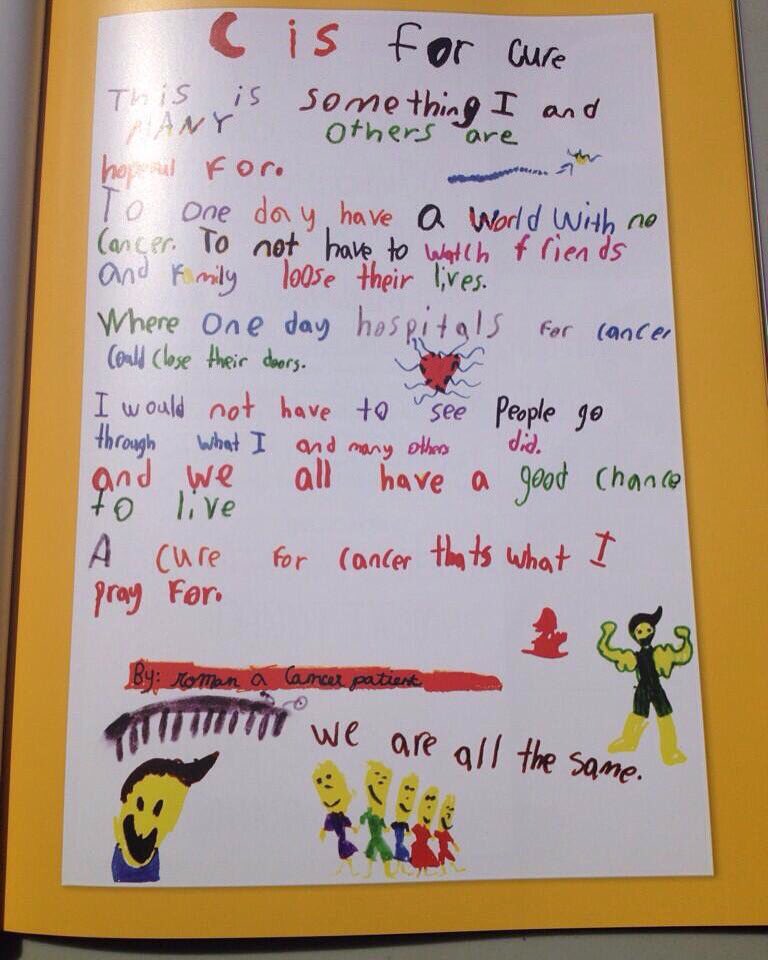 C is for cure
THis is something I and
MANY others are
hopeful for.
To one day have a world with no
cancer. To not have to watch friends
and family loose their lives.
Where one day hospitals for cancer
could close their doors.
I would not have to see people go
through what I and many others did.
and we all have a good chance
to live
A cure for cancer thats what I
pray for.
By: roman a cancer patient
we are all the same.